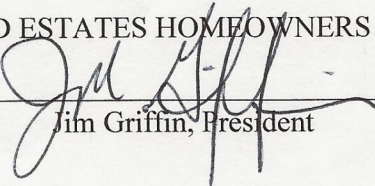 D ESTATES HOMEOWNERS
Jim Griffin
Jim Griffin, President